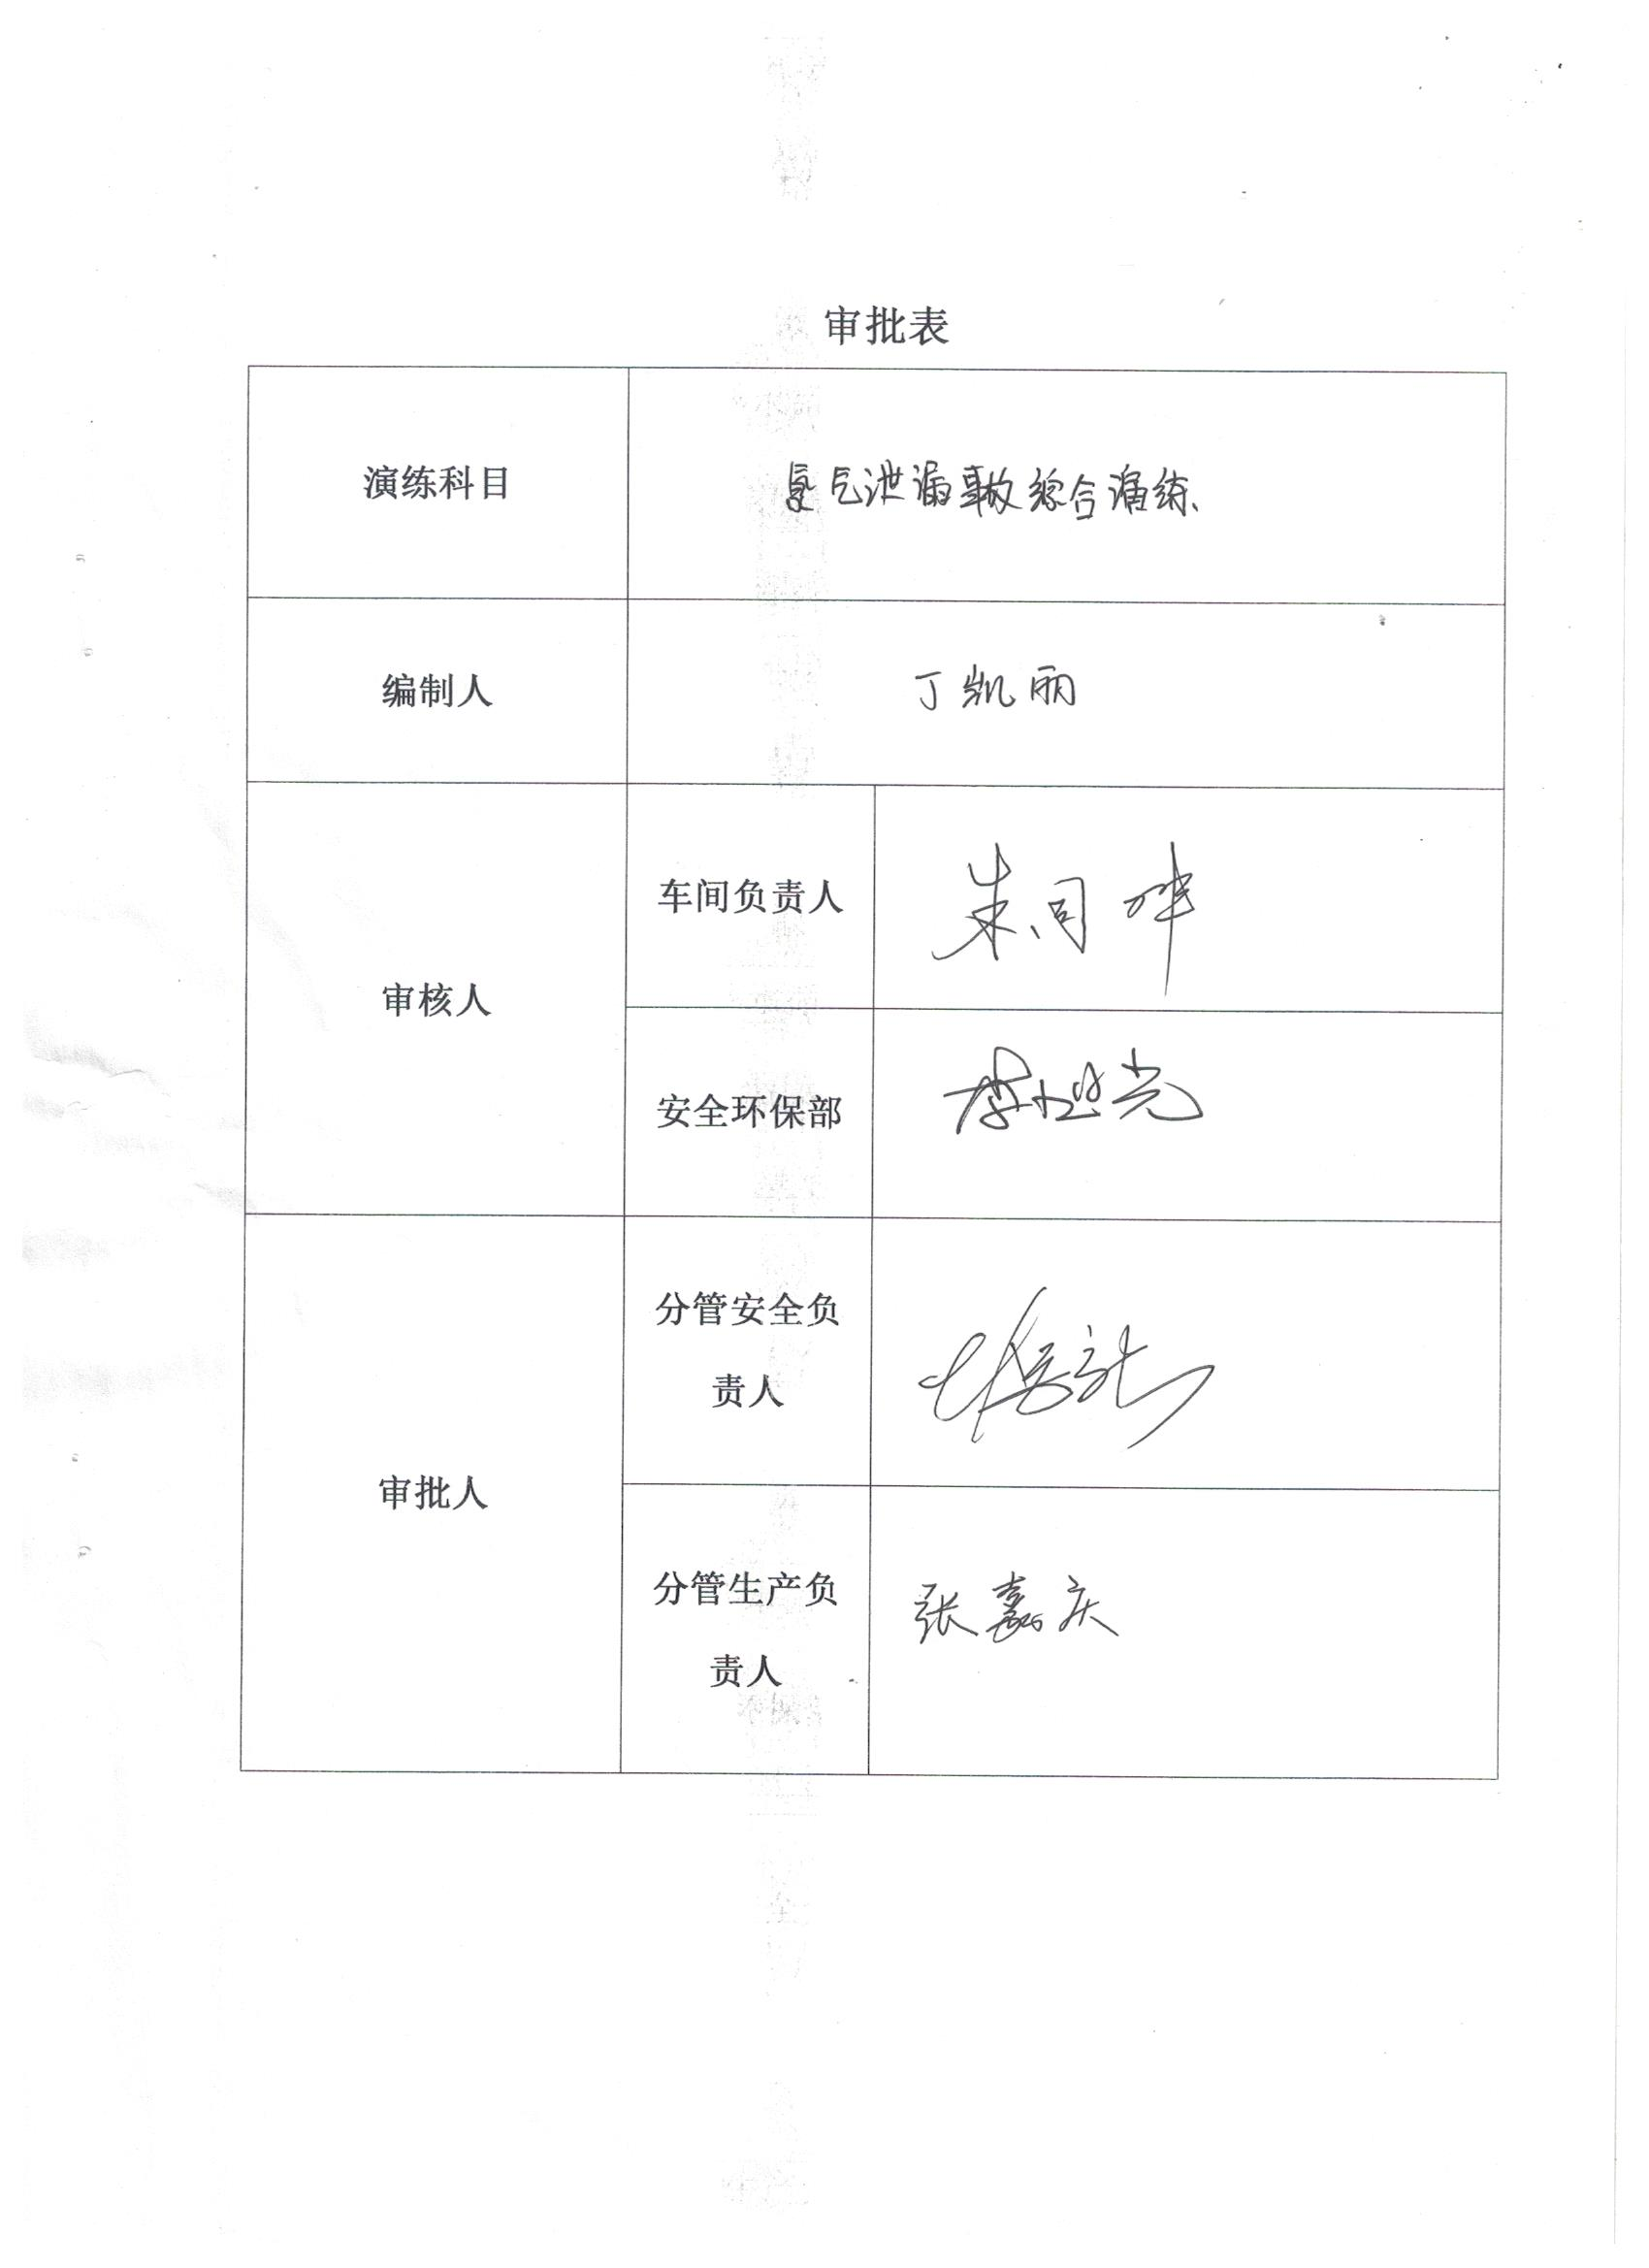 审批表
演练科目
气泄漏事故综合演练
编制人
丁凯丽
审核人
车间负责人
朱同
安全环保部
李光
审批人
分管安全负
责人
分管生产负
责人
张嘉庆